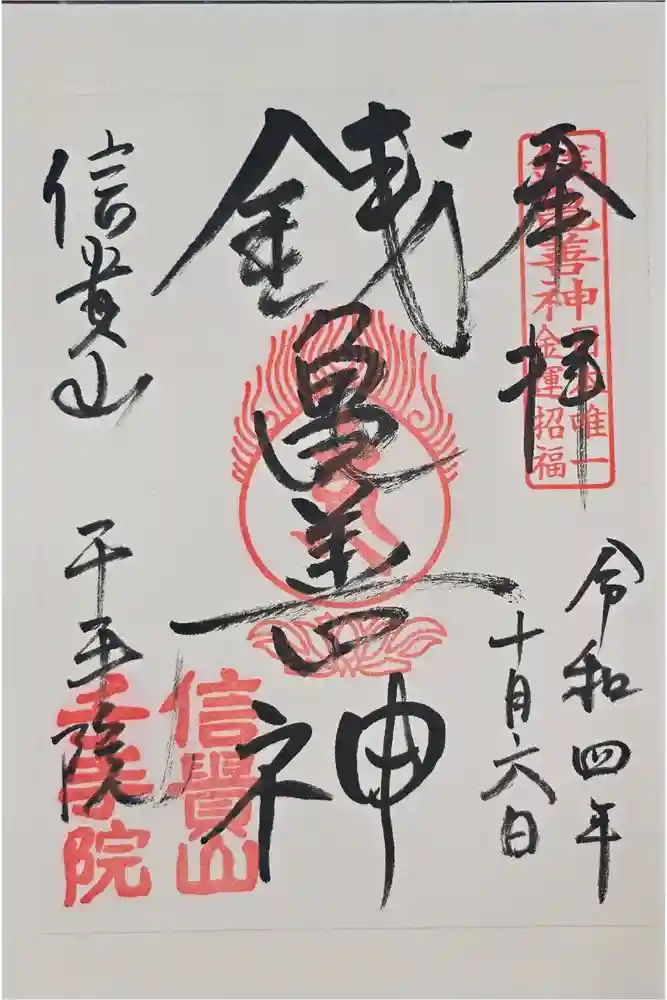 奉拝
銭亀善神
日本唯一
金運招福
令和四年
十月六日
銭亀善神
信貴山 千手院
信貴山
千手院